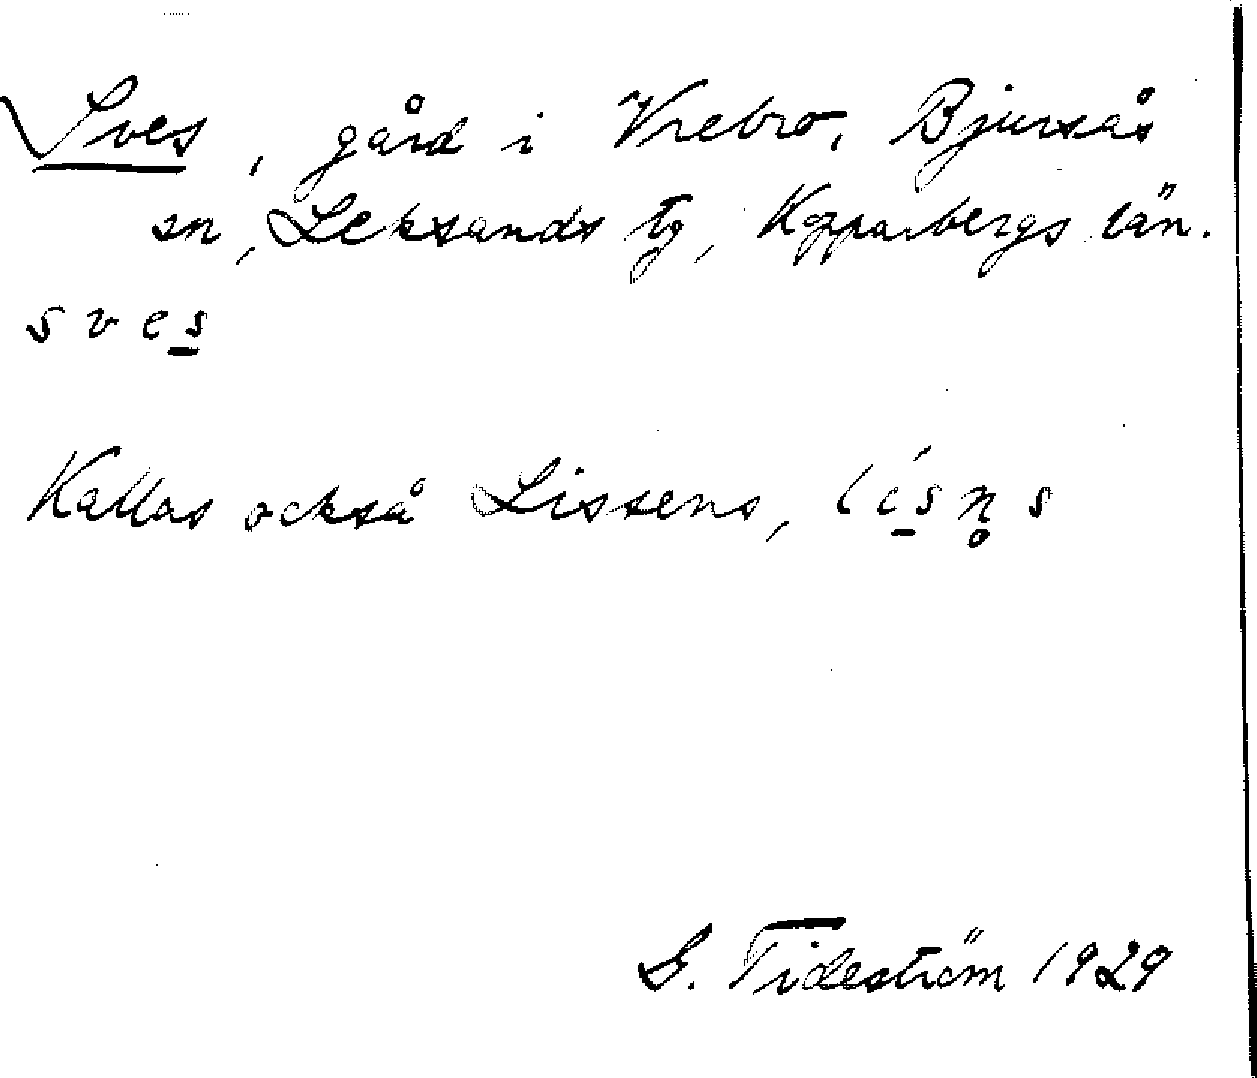 Sves, gård i Vrebro, Bjursås
sn, Leksands tg, Kopparbergs län.
s v e s
Kallas också Lissens, lísn̥s
G. Tideström 1929